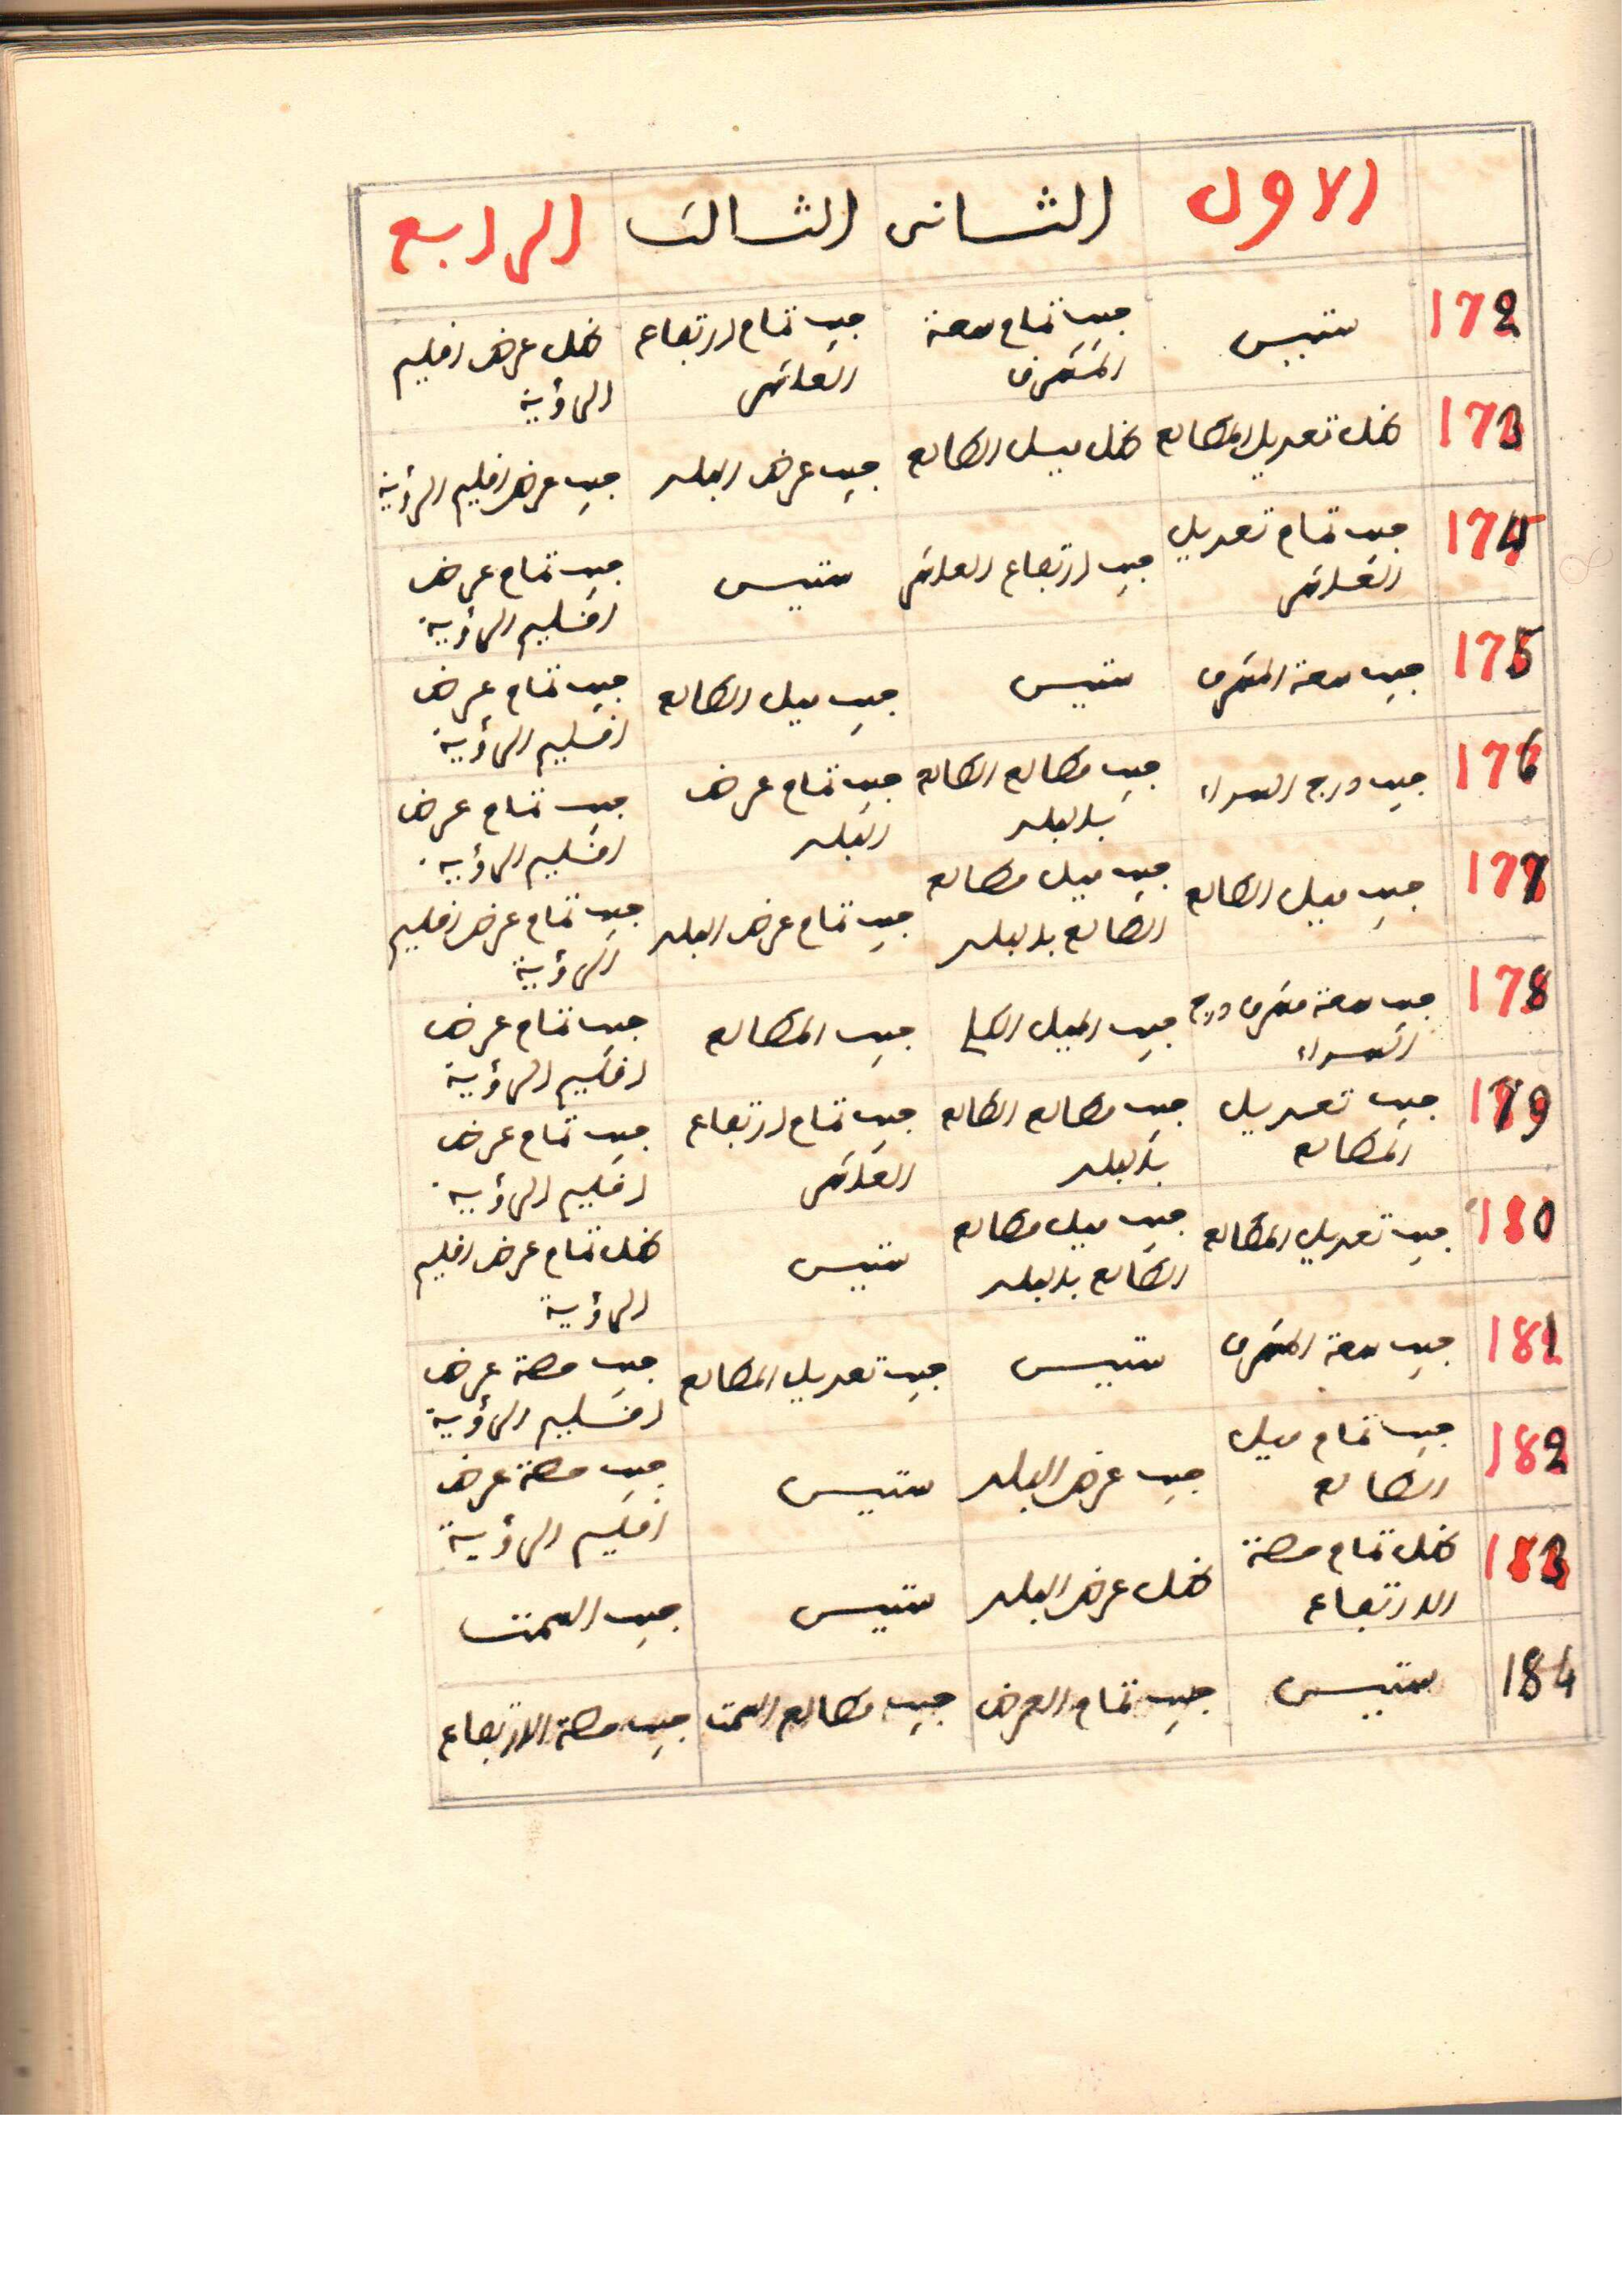 الاول الثانى الثالث الرابع
172 ستيس جيب تمام سعة المشرق جيب تمام ارتفاع العاشر ظل عرض اقليم الرؤية
173 ظل تعديل المطالع ظل ميل الطالع جيب عرض البلد جيب عرض اقليم الرؤية
174 جيب تمام تعديل العاشر جيب ارتفاع العاشر ستيس جيب تمام عرض اقليم الرؤية
175 جيب سعة المشرق ستيس جيب ميل الطالع جيب تمام عرض اقليم الرؤية
176 جيب درج السواء جيب مطالع الطالع بالبلد جيب تمام عرض البلد جيب تمام عرض اقليم الرؤية
177 جيب ميل الطالع جيب ميل مطالع الطالع بالبلد جيب تمام عرض البلد جيب تمام عرض اقليم الرؤية
178 جيب سعة مشرق درج السواء جيب الميل الكلي جيب المطالع جيب تمام عرض اقليم الرؤية
179 جيب تعديل المطالع جيب مطالع الطالع بالبلد جيب تمام ارتفاع العاشر جيب تمام عرض اقليم الرؤية
180 جيب تعديل المطالع جيب ميل مطالع الطالع بالبلد ستيس ظل تمام عرض اقليم الرؤية
181 جيب سعة المشرق ستيس جيب تعديل المطالع جيب حصة عرض اقليم الرؤية
182 جيب تمام ميل الطالع جيب عرض البلد ستيس جيب حصة عرض اقليم الرؤية
183 ظل تمام حصة الارتفاع ظل عرض البلد ستيس جيب السمت
184 ستيس جيب تمام العرض جيب مطالع السمت جيب حصة الارتفاع